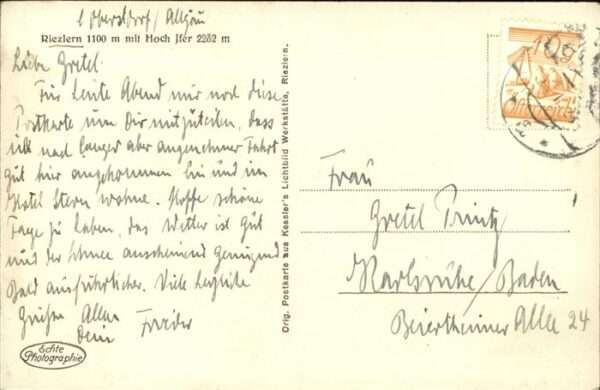 b/ Oberstdorf / Allgäu
Riezlern 1100 m mit Hoch Ifer 2232 m
Liebe Gretel.
Für heute Abend nur noch diese
Postkarte um Dir mitzuteilen, dass
ich nach langer aber angenehmer Fahrt
gut hier angekommen bin und im
Hotel Stern wohne. Hoffe schöne
Tage zu haben, das Wetter ist gut
und der Schnee anscheinend genügend
Bald ausführlicher. Viele herzliche
Grüße Allen
Dein Frieder
Echte
Photographie
Orig. Postkarte aus Kessler's Lichtbild Werkstätte, Riezlern.
Frau
Gretel Printz
Karlsruhe / Baden
Beiertheimer Allee 24